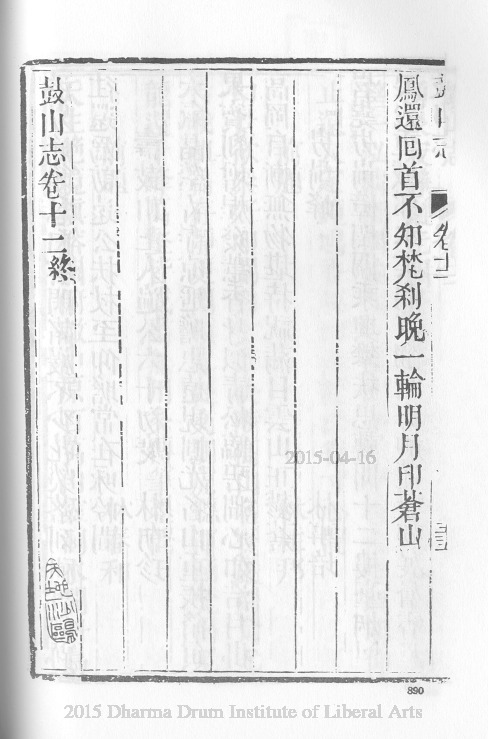 鳳還回首不知梵刹晩一輪明月印蒼山
鼓山志卷十二終
天地沙鷗
鼓山志
卷十二
2015-04-16
890
2015 Dharma Drum Institute of Liberal Arts